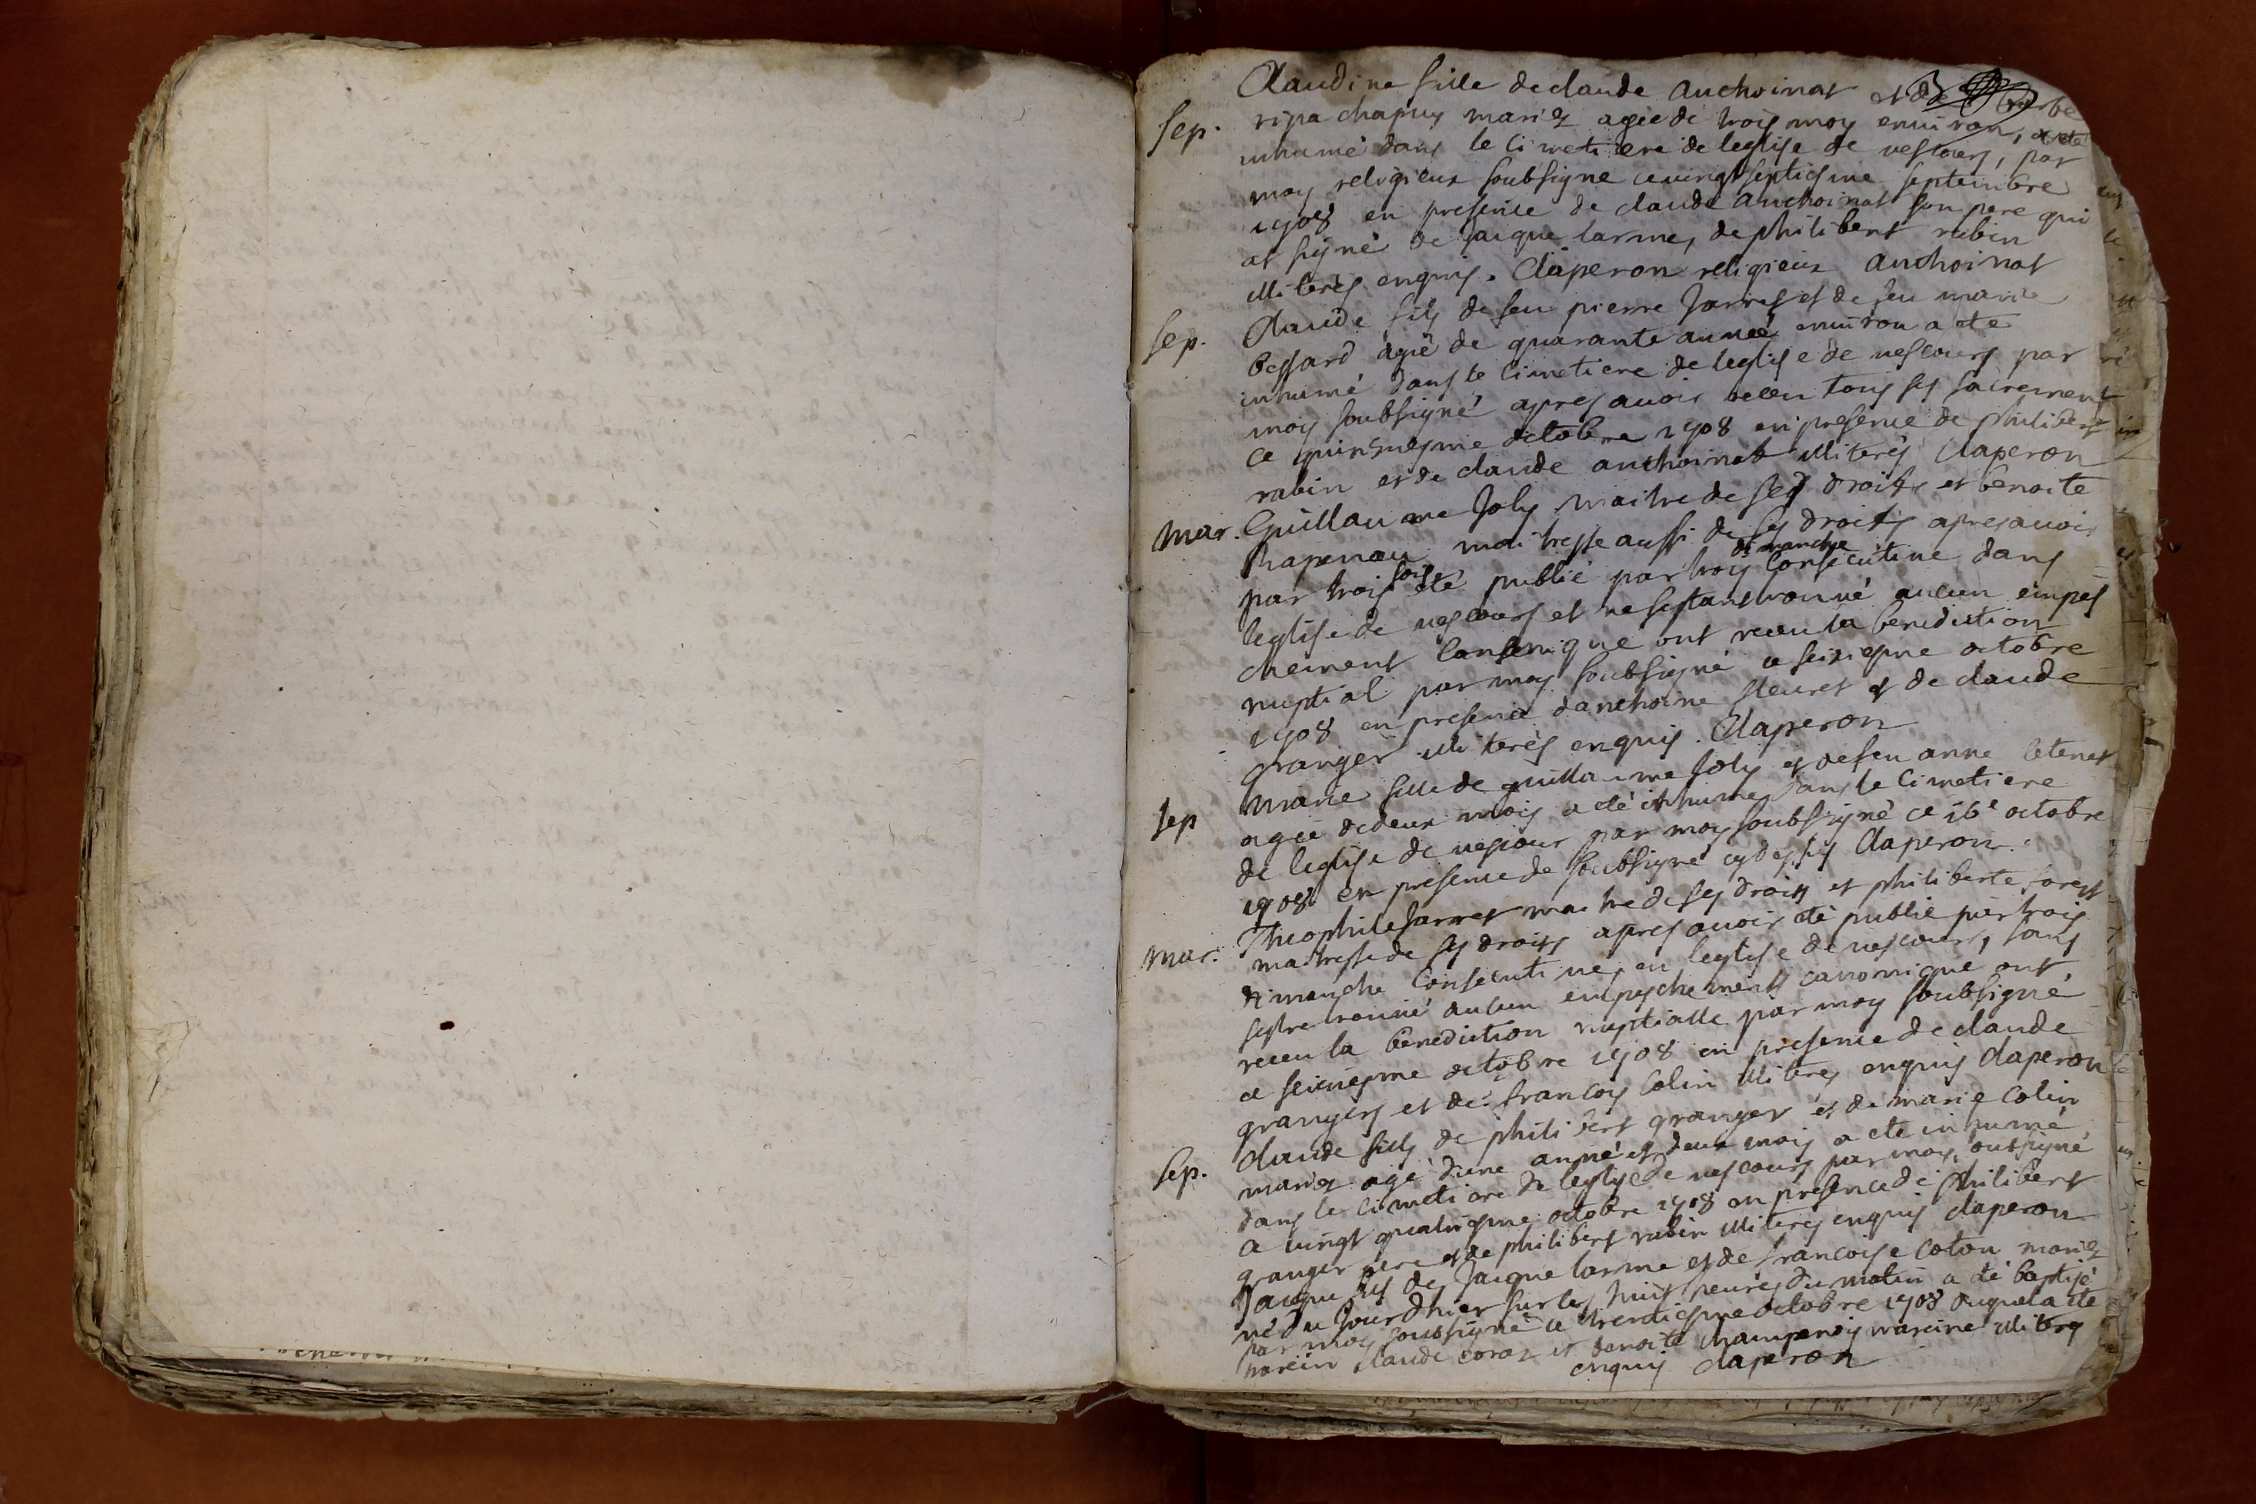 Claudine fille de claude anchoinat et de
sep. ripa chapuy mariez agée de trois moy environ, a ete
inhumé dans le Cimetiere de leglise de vescours, par
moy religieux soubsigne ce vingt septiesme septembre
1708 en presence de claude anchoinat son pere qui
at signé de Jacque larme, de philibert rabin
illiterés enquis. Claperon religieux anchoinat
sep. Claude fils de feu pierre Jarret et de feu marie
bessard agé de quarante année environ a ete
inhumé dans le Cimetiere de leglise de vescours par
moy soubsigné apres avoir receu tous ses sacrement
ce quinsiesme octobre 1708 en presence de philibert
rabin et de claude anchoinat illiterés Claperon
mar. Guillaume Joly maitre de ses droits et benoite
Rapenau maitresse aussi de ses droits apres avoir
par trois fois ete publié par trois dimanche Consecutive dans
leglise de vescours et ne sestant trouvé aucun empes
chement Canonique ont receu la benediction
nuptial par moy soubsigné ce seisiesme octobre
1708 en presence danthoine fleuret et de claude
granger illiterés enquis. Claperon
sep marie fille de guillaume Joly et de feu anne
agée de deux mois a été inhumé dans le Cimetiere
de leglise de vescour par moy soubsigné ce 16e octobre
1708 en presence de soubsigné cy dessus Claperon.
mar. Theophile Jarret maitre de ses droits et philiberte forest
maitresse de ses droits apres avoir eté publié par trois
dimanche Consecutives en leglise de vescours, sans
sestre trouvé aucun empeschements canonnique ont
receu la benediction nuptialle par moy soubsigné
ce seisiesme octobre 1708 en presence de claude
grangers et de francois Colin illiteres enquis claperon
sep. claude fils de philibert granger et de marie Colin
mariez agé dune année et deux mois a ete inhumé
dans le Cimetiere de leglise de vescours par moy sousigné
ce vingt quatriesme octobre 1708 en presence de philibert
granger pere et de philibert rabin illiterés enquis claperon
Jacque fils de Jacque larme et de francoise Coton mariez
né du Jour dhier sur les huit heures du matin a eté baptisé
par moy soussigné ce trentiesme octobre 1708 duquel a ete
parein claude coraz et benoite champenois mareine illiteres
enquis claperon